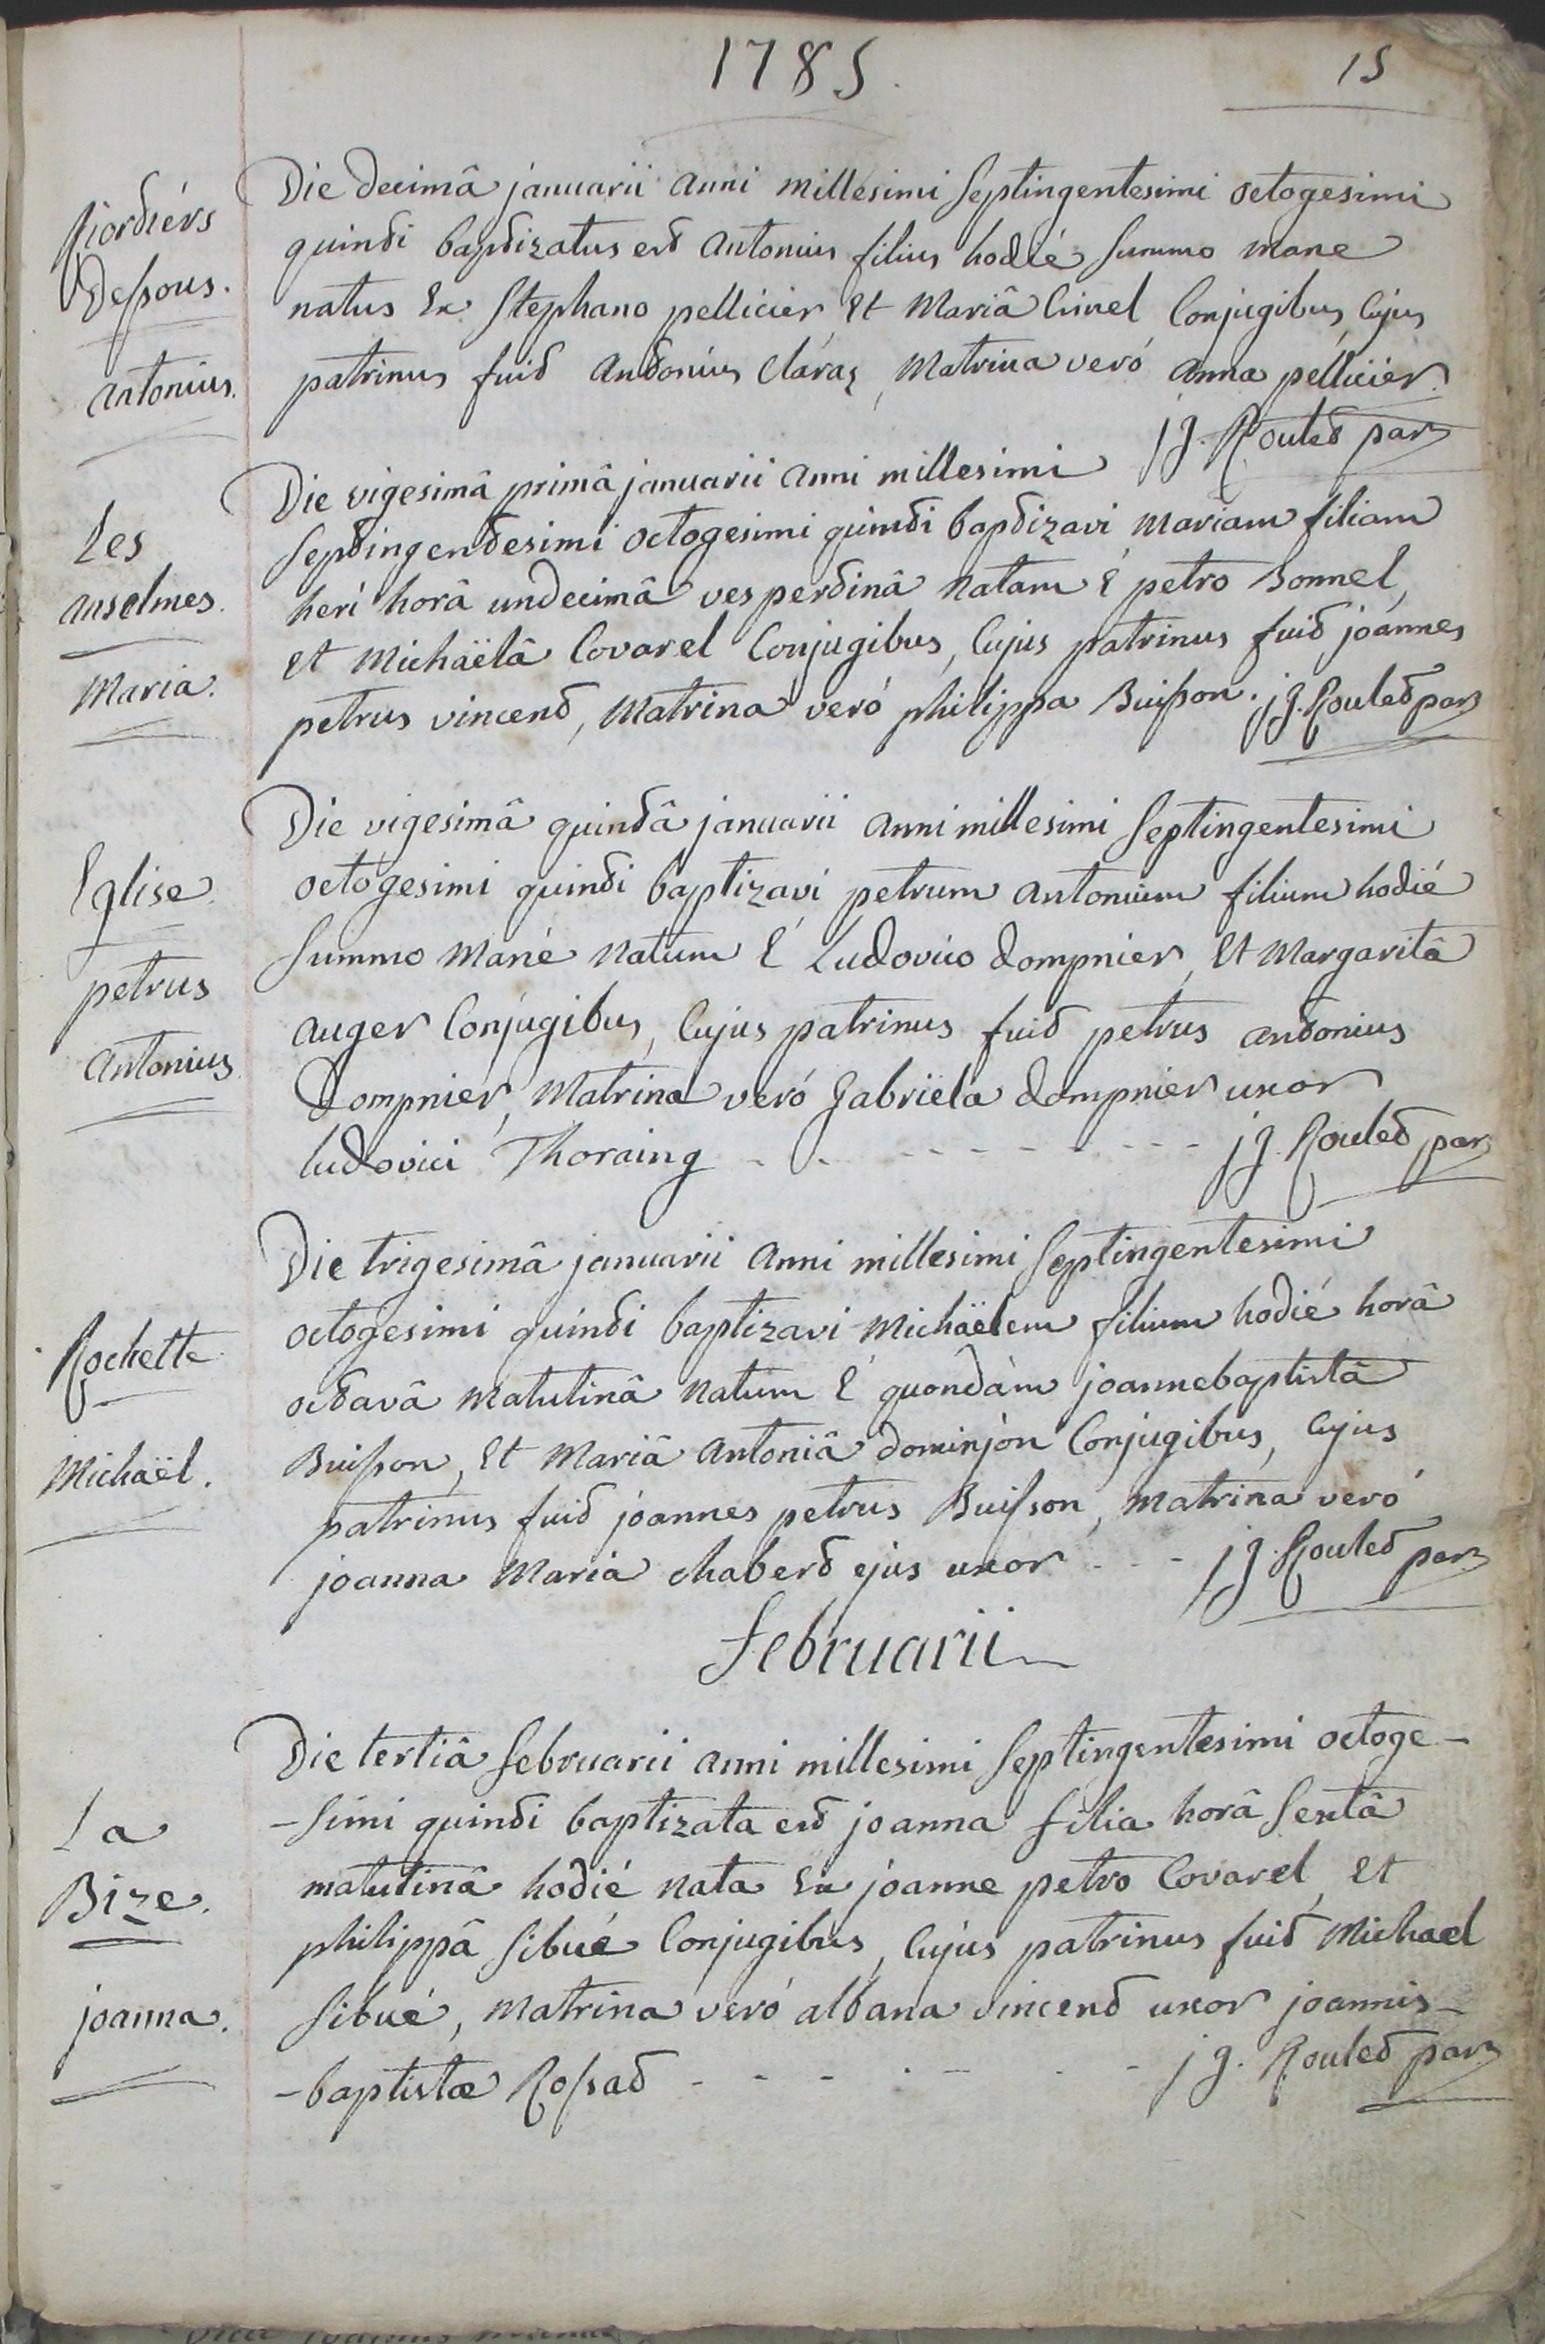 1785.
15
fiordiérs
Dessous.
antonius.
Die decimâ januarii anni millesimi septingentesimi octogesimi
quinti baptizatus est antonius filius hodié summo mane
natus Ex Stephano pellicier Et Mariâ Cinel Conjugibus, Cujus
patrinus fuit antonius Claraz, Matrina veró anna pellicier.
jg. Roulet par
Les
anselmes.
Maria.
Die vigesimâ primâ januarii anni millesimi
septingentesimi octogesimi quinti baptizavi Mariam filiam
heri horâ undecimâ vespertinâ natam é petro Bonnel,
et Michaëlâ Covarel Conjugibus, Cujus patrinus fuit joannes
petrus vincent, Matrina veró philippa Buisson. jg. Roulet par
Eglise.
petrus
antonius
Die vigesimâ quintâ januarii anni millesimi septingentesimi
octogesimi quinti baptizavi petrum antonium filium hodié
summo mané natum é Ludovico dompnier, Et Margaritâ
auger Conjugibus, Cujus patrinus fuit petrus antonius
Dompnier, Matrina veró gabriela dompnier uxor
ludovici Thoraing - - - - - - - - - jg. Roulet par
Rochette
Michaël.
Die trigesimâ januarii anni millesimi septingentesimi
octogesimi quinti baptizavi Michaëlem filium hodié horâ
octavâ matutinâ natum é quondàm joannebaptistâ
Buisson, Et Mariâ antoniâ dominjon Conjugibus, Cujus
patrinus fuit joannes petrus Buisson, matrina veró
joanna Maria chabert ejus uxor - - - jg. Roulet par
februarii
La
Bize.
joanna.
Die tertiâ februarii anni millesimi septingentesimi octoge-
-simi quinti baptizata est joanna filia horâ sextâ
matutinâ hodié nata Ex joanne petro Covarel, et
philippâ Sibué Conjugibus, Cujus patrinus fuit Michael
Sibué, Matrina veró albana vincent uxor joannis-
-baptistæ Rossat - - - - - - - jg. Roulet par